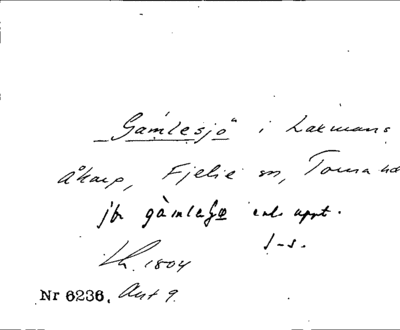 "Gamlesjö" i Lackmans
Åkarp, Fjelie sn, Torna hd
jfr gàmleʃø enl. uppt.
J-s.
Lh. 1804
Nr 6236, Ant 9.